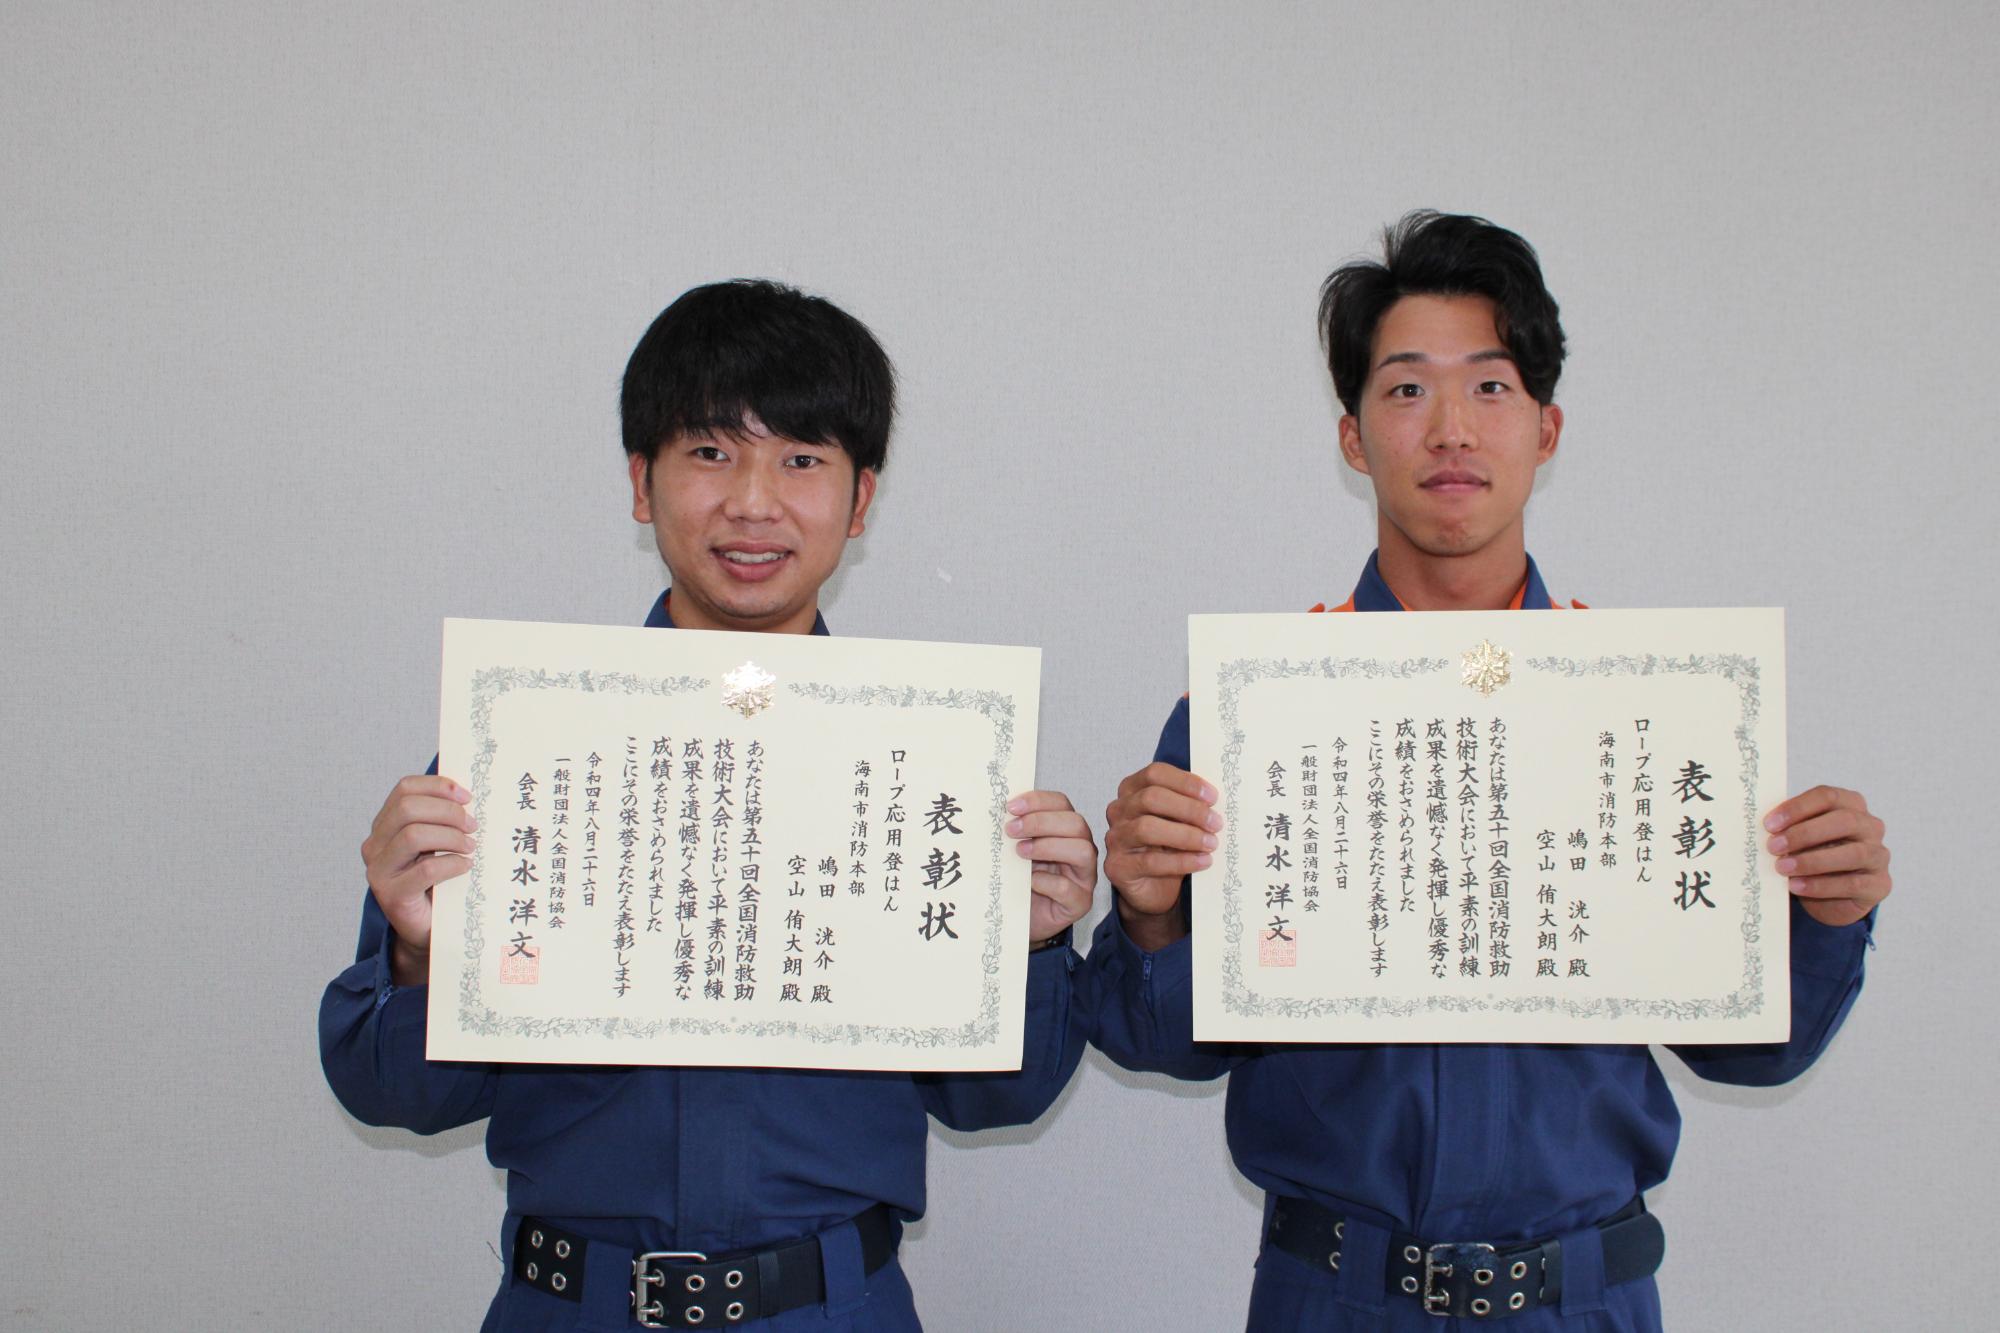 表彰状
ロープ応用登はん
海南市消防本部
嶋田 洸介 殿
空山 侑大朗 殿
あなたは第五十回全国消防救助
技術大会において平素の訓練
成果を遺憾なく発揮し優秀な
成績をおさめられました
ここにその栄誉をたたえ表彰します
令和四年八月二十六日
一般財団法人全国消防協会
会長 清水洋文
表彰状
ロープ応用登はん
海南市消防本部
嶋田 洸介 殿
空山 侑大朗 殿
あなたは第五十回全国消防救助
技術大会において平素の訓練
成果を遺憾なく発揮し優秀な
成績をおさめられました
ここにその栄誉をたたえ表彰します
令和四年八月二十六日
一般財団法人全国消防協会
会長 清水洋文